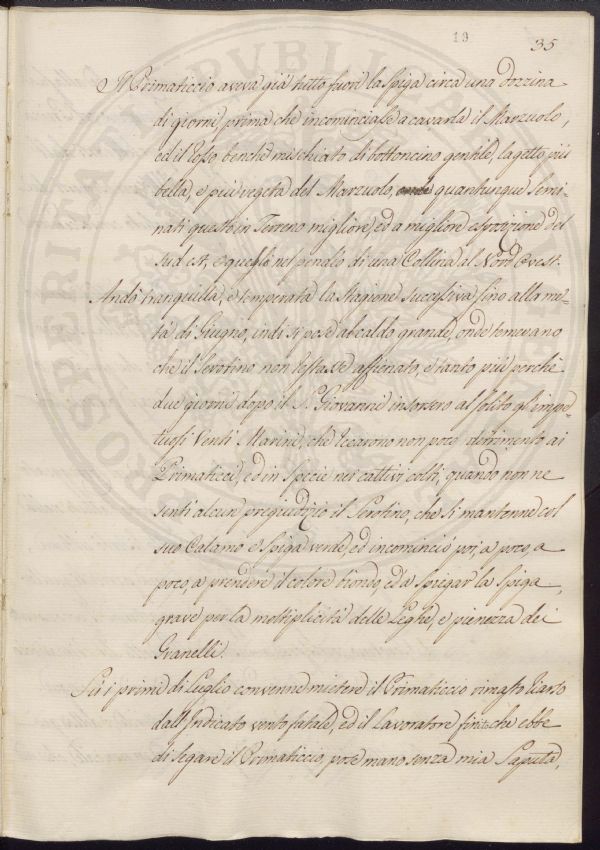 19
35
Il Primaticcio aveva già tutto fuori la spiga circa una dozzina
di giorni, prima che incominciasse a cavarla il Marzuolo,
ed il Rosso benchè mischiato di bottoncino gentile, la gettò più
bella, e più vegeta del Marzuolo, quantunque semi-
nati questo in Terreno migliore, ed a migliore esposizione del
Sud est, e quello nel pendio di una Collina al Nord Ovest.
Andò tranquilla, e temperata la Stagione successiva fino alla me-
tà di Giugno, indi si pose al caldo grande, onde temevano
che il Serotino non restasse affienato, e tanto più perchè
due giorni dopo il S. Giovanni insorsero al solito gl'impe-
tuosi Venti Marini, che recarono non poco detrimento ai
Primaticci, ed in Specie nei cattivi colti, quando non ne
sentì alcun pregiudizio il Serotino, che si mantenne col
suo Calamo e Spiga verde, ed incominciò poi, a poco, a
poco, a prendere il colore biondo, ed a spiegar la Spiga
grave per la moltiplicità delle Leghe, e pienezza dei
Granelli.
Su i primi di Luglio convenne mietere il Primaticcio rimasto riarso
dall'Indicato vento fatale, ed il Lavoratore finito che ebbe
di segare il Primaticcio, pose mano senza mia Saputa,
PROSPERITATI PVBLICAE